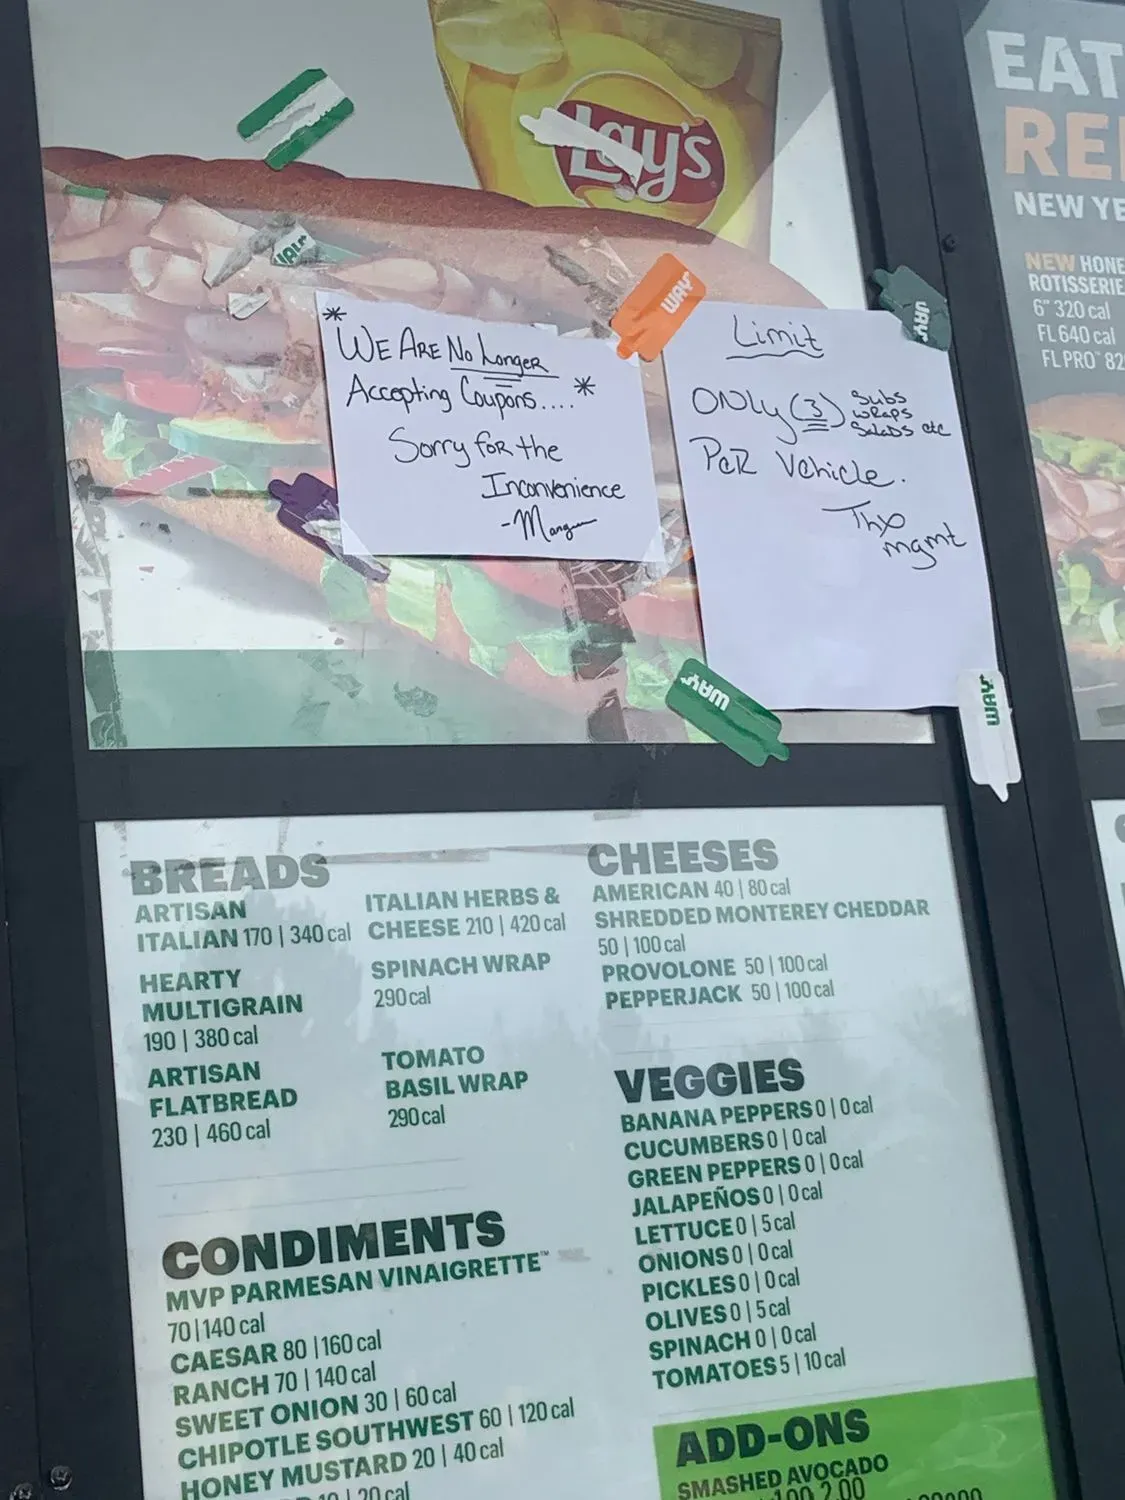 Lay's
WAY
WAY
WAY
WAY
* WE ARE No Longer
Accepting Coupons.... *
Sorry for the
Inconvenience
Limit
ONLY (3) Subs
wraps
Salads etc
PER Vehicle.
Thx
mgmt
EAT
NEW YE
NEW HONE
ROTISSERIE
6" 320 cal
FL 640 cal
FL PRO™ 82
BREADS
ARTISAN
ITALIAN 170 | 340 cal
HEARTY
MULTIGRAIN
190 | 380 cal
ARTISAN
FLATBREAD
230 | 460 cal
ITALIAN HERBS &
CHEESE 210 | 420 cal
SPINACH WRAP
290 cal
TOMATO
BASIL WRAP
290 cal
CONDIMENTS
MVP PARMESAN VINAIGRETTE™
70 | 140 cal
CAESAR 80 | 160 cal
RANCH 70 | 140 cal
SWEET ONION 30 | 60 cal
CHIPOTLE SOUTHWEST 60 | 120 cal
HONEY MUSTARD 20 | 40 cal
10 | 20 cal
CHEESES
AMERICAN 40 | 80 cal
SHREDDED MONTEREY CHEDDAR
50 | 100 cal
PROVOLONE 50 | 100 cal
PEPPERJACK 50 | 100 cal
VEGGIES
BANANA PEPPERS 0 | 0 cal
CUCUMBERS 0 | 0 cal
GREEN PEPPERS 0 | 0 cal
JALAPEÑOS 0 | 0 cal
LETTUCE 0 | 5 cal
ONIONS 0 | 0 cal
PICKLES 0 | 0 cal
OLIVES 0 | 5 cal
SPINACH 0 | 0 cal
TOMATOES 5 | 10 cal
ADD-ONS
SMASHED AVOCADO